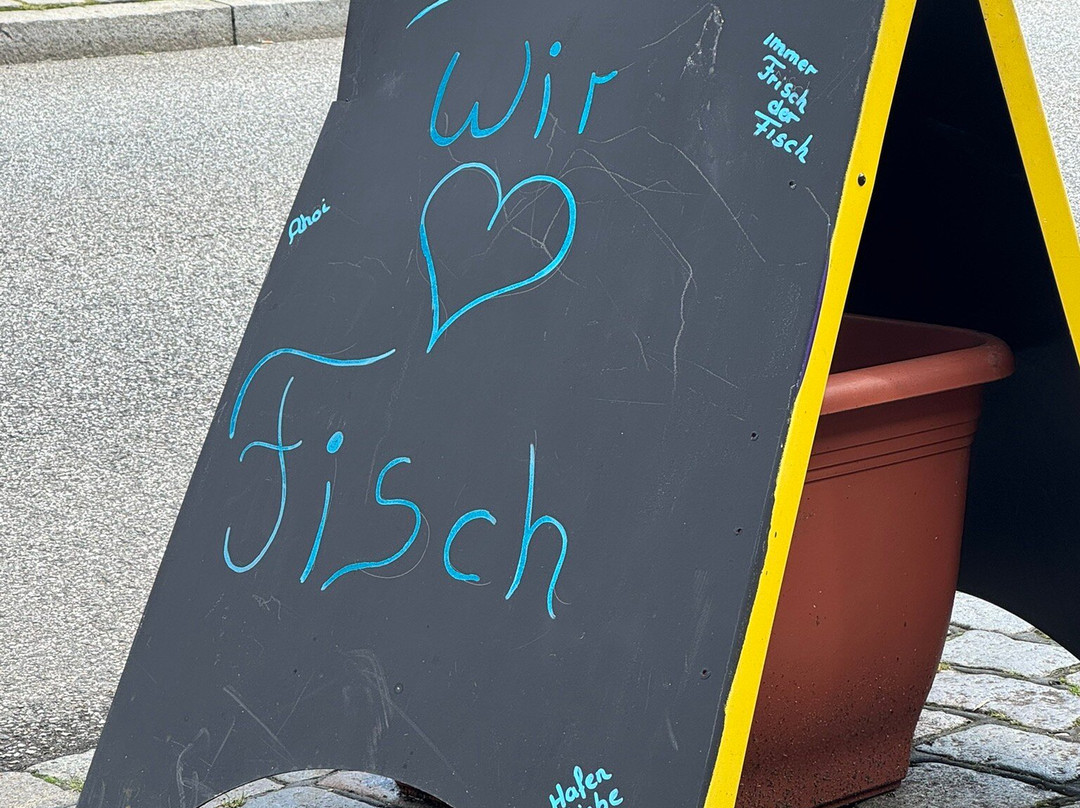 Wir
♥
Fisch
Immer
Frisch
der
Fisch
Ahoi
Hafen